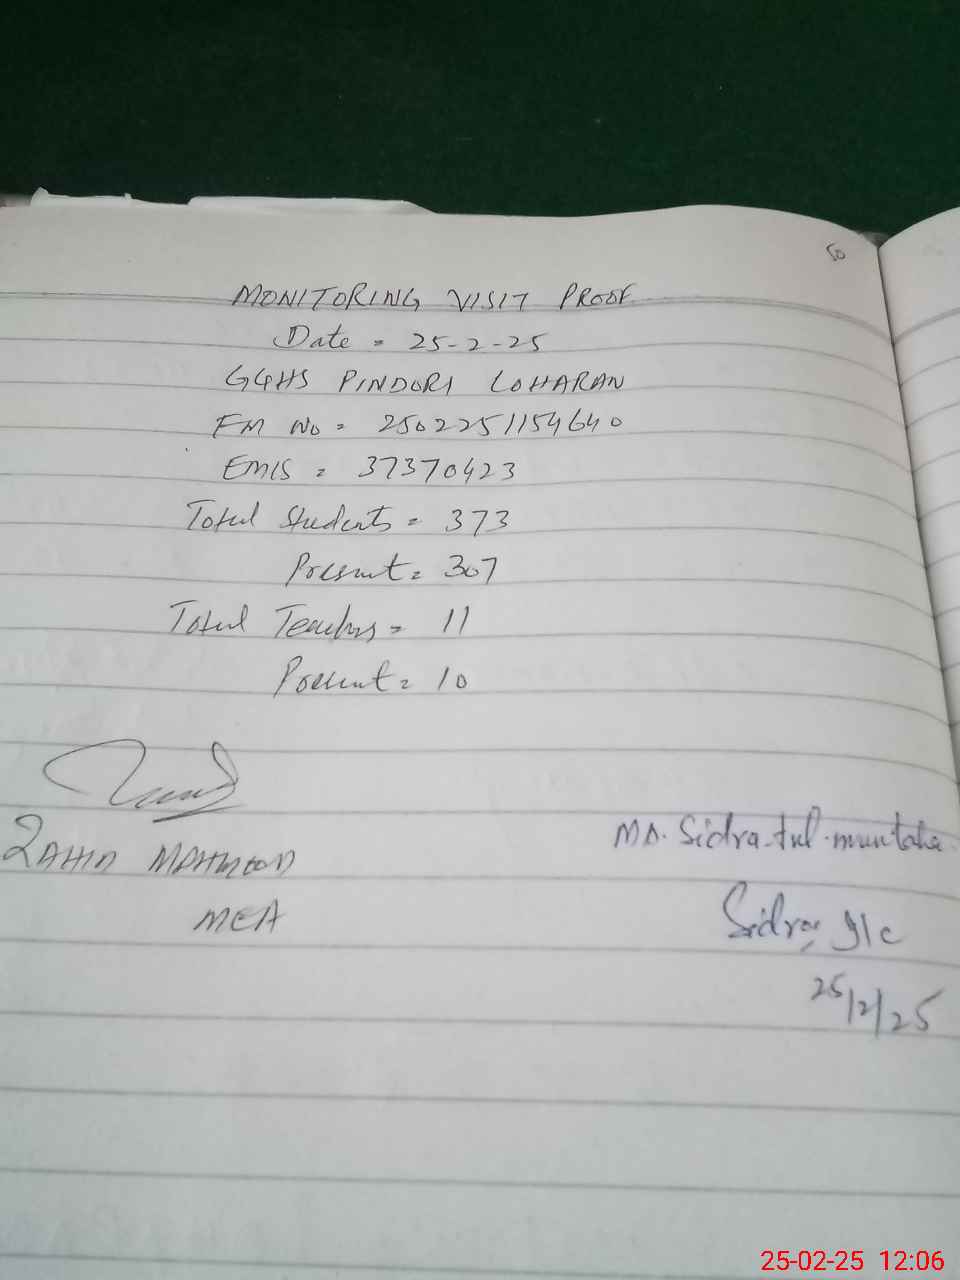 50
MONITORING VISIT PROOF
Date = 25-2-25
GGHS PINDORI LOHARAN
FM No = 2502251154640
EMIS = 37370423
Total Students = 373
Present = 307
Total Teachers = 11
Present = 10
ZAHID MAHMOOD
MEA
Sidra-tul-muntaha
Sidra I/C
25/2/25
25-02-25 12:06